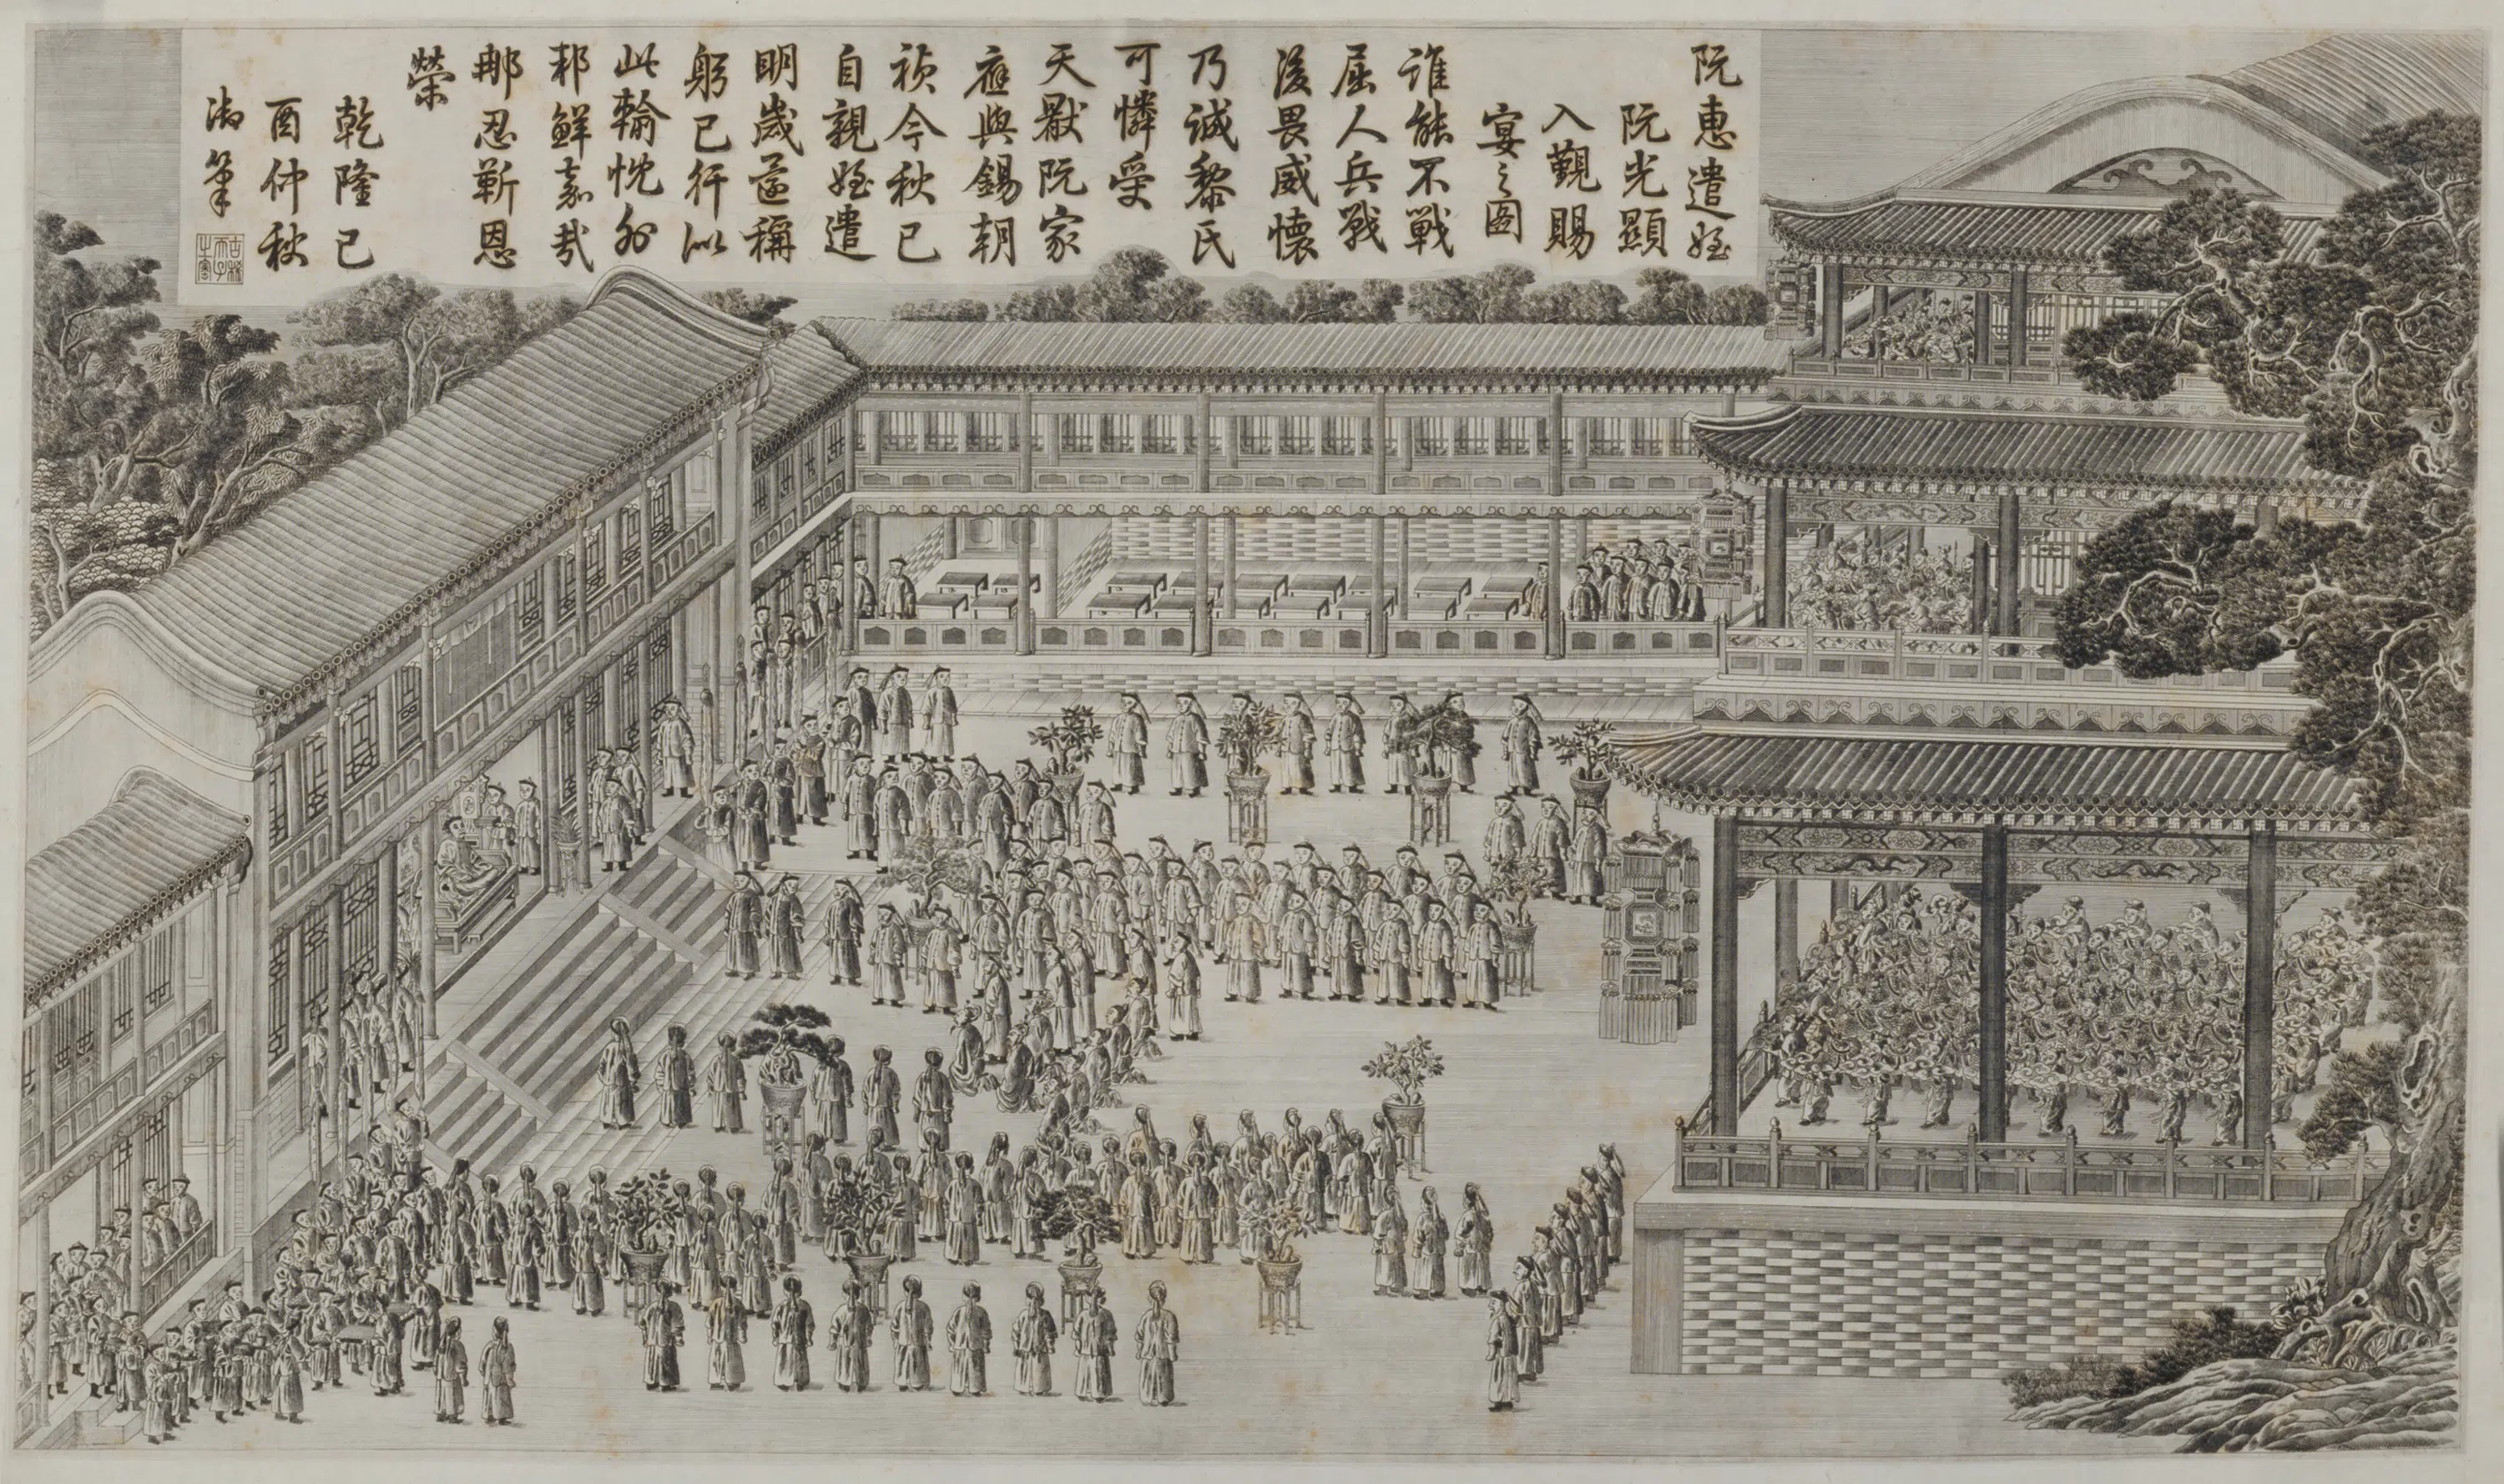 阮惠遣姪
阮光顯
入覲賜
宴之圖
誰能不戰
屈人兵戰
後畏威懷
乃誠黎氏
可憐受
天厭阮家
應與錫朝
禎今秋已
自親姪遣
明歲還稱
躬己行似
此輸忱外
邦鮮嘉哉
那忍靳恩
榮
乾隆己
酉仲秋
御筆
古稀天子之寶